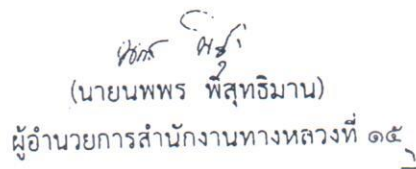 (นายนพพร พีสุทธิมาน)
ผู้อำนวยการสำนักงานทางหลวงที่ ๑๕